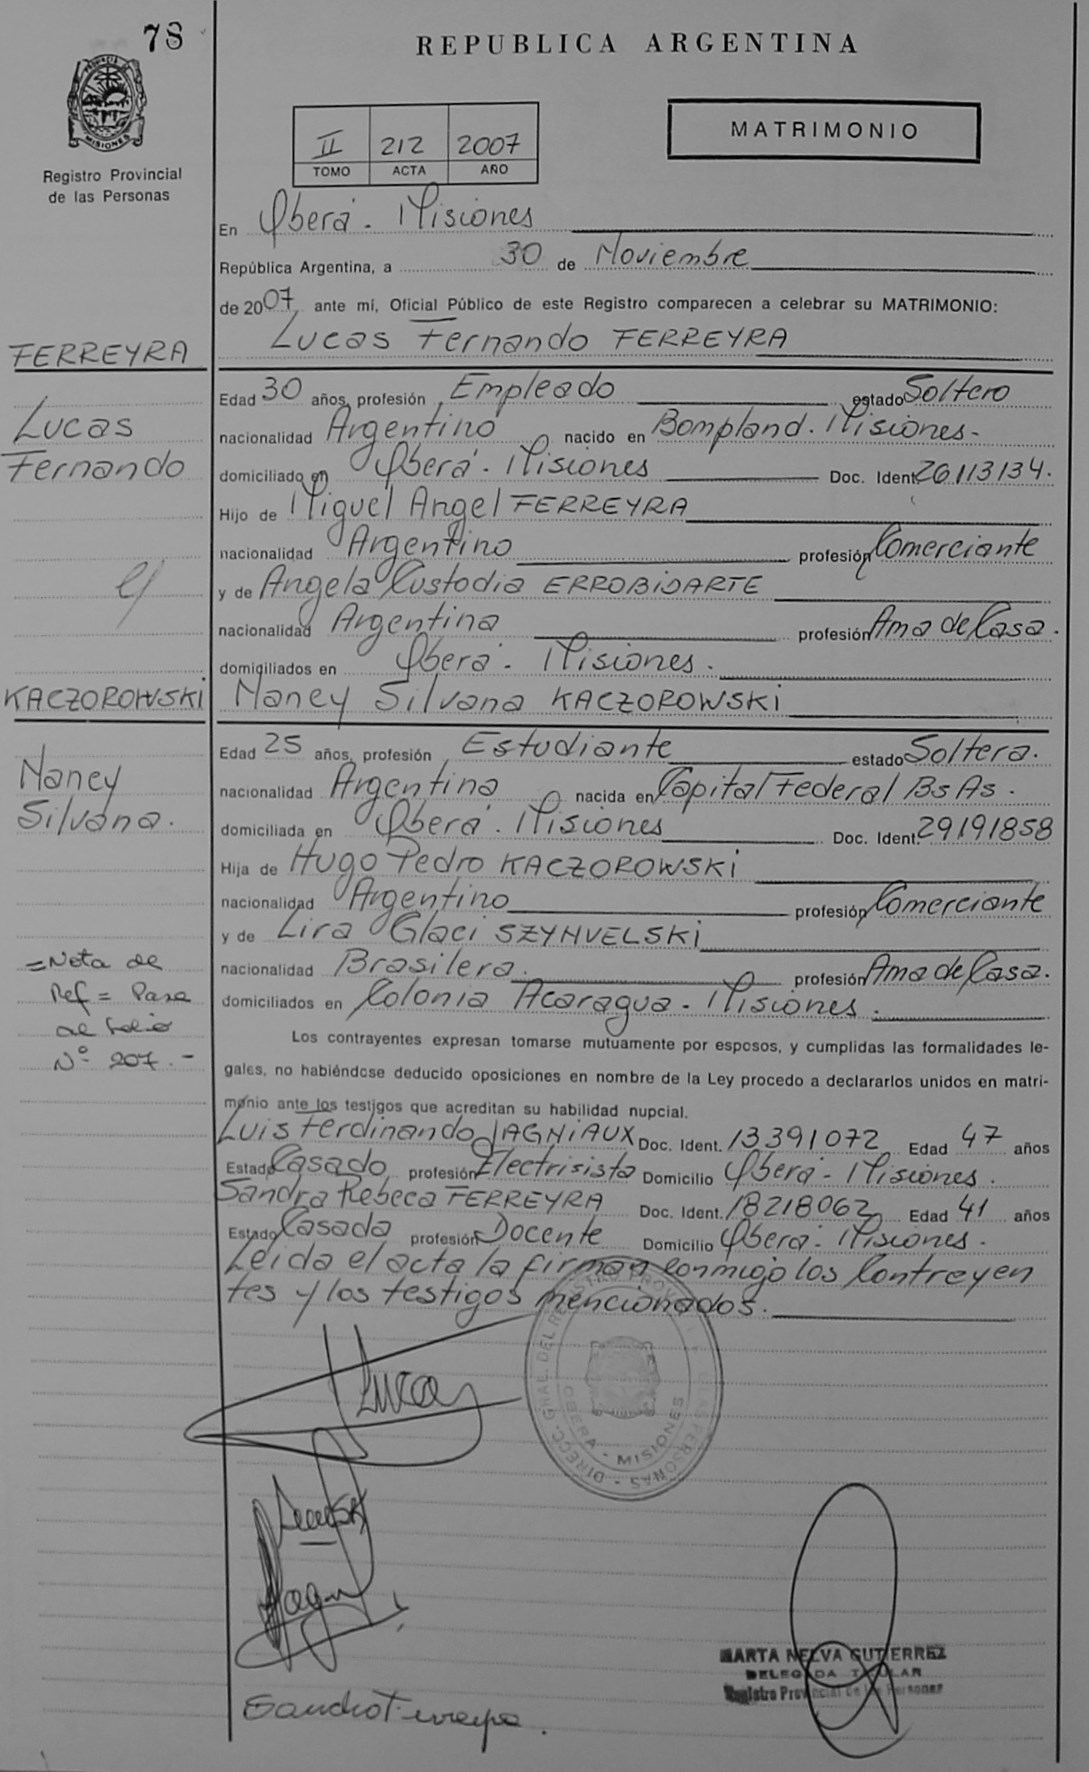 78
REPUBLICA ARGENTINA
PROVINCIA DE MISIONES
Registro Provincial
de las Personas
II 212 2007
TOMO ACTA AÑO
MATRIMONIO
En Oberá - Misiones
República Argentina, a 30 de Noviembre
de 2007 ante mi, Oficial Público de este Registro comparecen a celebrar su MATRIMONIO:
Lucas Fernando FERREYRA
FERREYRA
Lucas
Fernando
Edad 30 años, profesión Empleado estado Soltero
nacionalidad Argentino nacido en Bompland. Misiones-
domiciliado en Oberá - Misiones Doc. Ident. 26113134.
Hijo de Miguel Angel FERREYRA
nacionalidad Argentino profesión Comerciante
y de Angela Custodia ERROBIDARTE
nacionalidad Argentina profesión Ama de Casa.
domiciliados en Oberá - Misiones.
KACZOROWSKI
Nancy
Silvana.
Nancy Silvana KACZOROWSKI
Edad 25 años, profesión Estudiante estado Soltera.
nacionalidad Argentina nacida en Capital Federal Bs As.
domiciliada en Oberá - Misiones Doc. Ident. 29191858
Hija de Hugo Pedro KACZOROWSKI
nacionalidad Argentino profesión Comerciante
y de Lira Glaci SZYMVELSKI
nacionalidad Brasilera. profesión Ama de Casa.
domiciliados en Colonia Acaragua - Misiones.
=Nota de
Ref = Pasa
al folio
Nº 207.-
Los contrayentes expresan tomarse mutuamente por esposos, y cumplidas las formalidades le-
gales, no habiéndose deducido oposiciones en nombre de la Ley procedo a declararlos unidos en matri-
monio ante los testigos que acreditan su habilidad nupcial.
Luis Ferdinando JAGNIAUX Doc. Ident. 13391072 Edad 47 años
Estado Casado profesión Electrisista Domicilio Oberá - Misiones.
Sandra Rebeca FERREYRA Doc. Ident. 18218062 Edad 41 años
Estado Casada profesión Docente Domicilio Oberá - Misiones.
Leida el acta la firman conmigo los Contreyen
tes y los testigos mencionados.
DIRECC. GRAL. DEL REGISTRO PROVINCIAL DE LAS PERSONAS
OBERA - MISIONES
Lucas
MARTA NELVA GUTIERREZ
DELEGADA TITULAR
Registro Provincial de las Personas